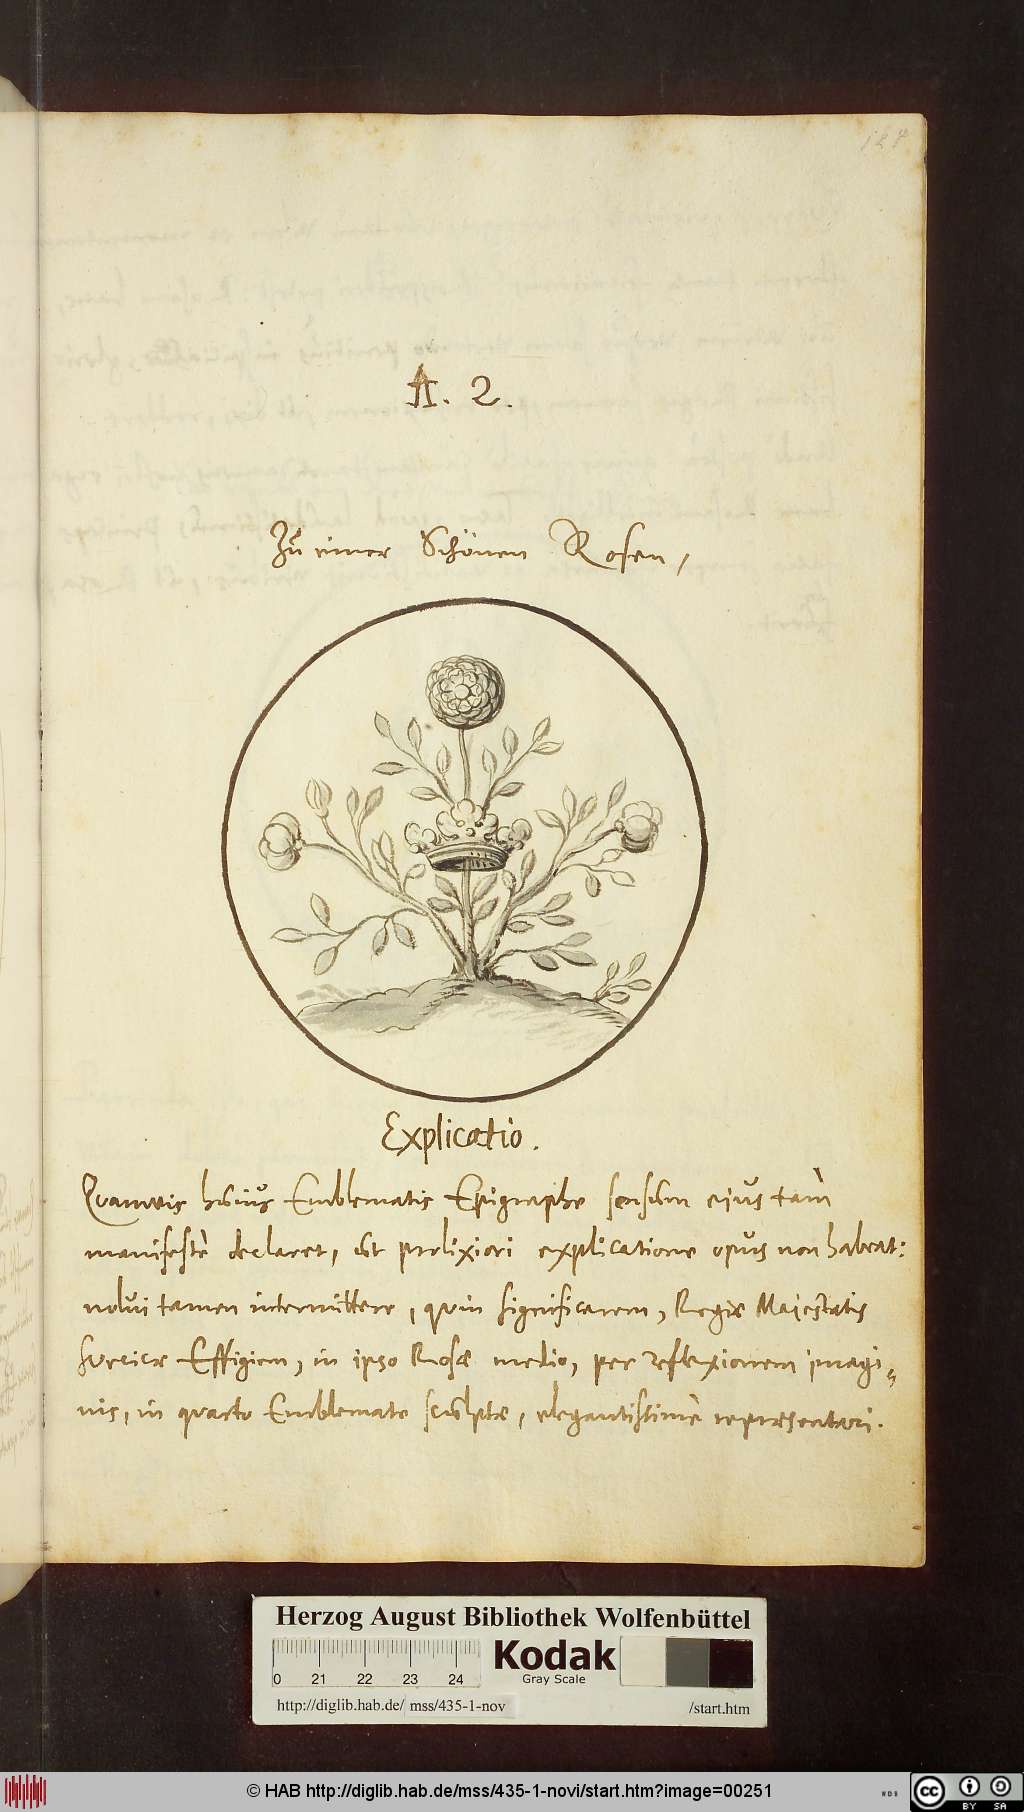 A. 2.
Zu einer Schönen Rosen,
Explicatio.
Quamvis hujus Emblematis Epigraphe sensum ejus tam
manifestè declaret, ut prolixiori explicatione opus non habeat:
nolui tamen intermittere, quin significarem, Regiæ Majestatis
Sveciæ Effigiem, in ipso Rosæ medio, per reflexionem imagi„
nis, in quarto Emblemate sculptæ, elegantissimè repræsentari.
Herzog August Bibliothek Wolfenbüttel
0 21 22 23 24
Kodak
Gray Scale
http://diglib.hab.de/ mss/435-1-nov /start.htm
© HAB http://diglib.hab.de/mss/435-1-novi/start.htm?image=00251
WDB
cc BY SA